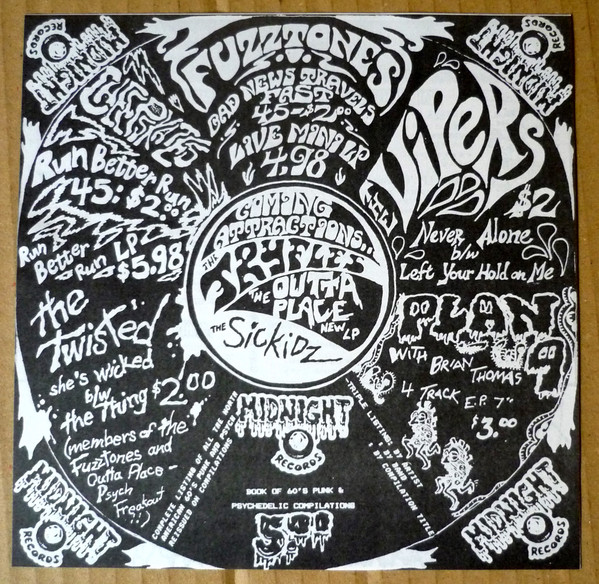 MIDNIGHT
RECORDS
MIDNIGHT
RECORDS
FUZZTONES
BAD NEWS TRAVELS
FAST
45-$2.00
LIVE MINI LP
4.98
VIPERS
$2
Never Alone
b/w
Left Your Hold on Me
Run Better Run
45: $2.00
Run
Better
Run LP
$5.98
COMING
ATTRACTIONS..
THE
TRYFLES
THE OUTTA
PLACE
NEW LP
THE SICKIDZ
the
Twisted
she's wicked
b/w
the Thing $2.00
(members of the
Fuzztones and
Outta Place -
Psych
Freakout...)
PLAN
9
WITH BRIAN
THOMAS
4 TRACK E.P. 7"
$3.00
COMPLETE LISTING OF ALL THE NORTH
AMERICAN 60'S PUNK AND PSYCH
REISSUED ON COMPILATIONS
MIDNIGHT
RECORDS
BOOK OF 60'S PUNK &
PSYCHEDELIC COMPILATIONS
TRIPLE LISTINGS: BY ARTIST
BY BAND
BY COMPILATION TITLE
MIDNIGHT
RECORDS
MIDNIGHT
RECORDS